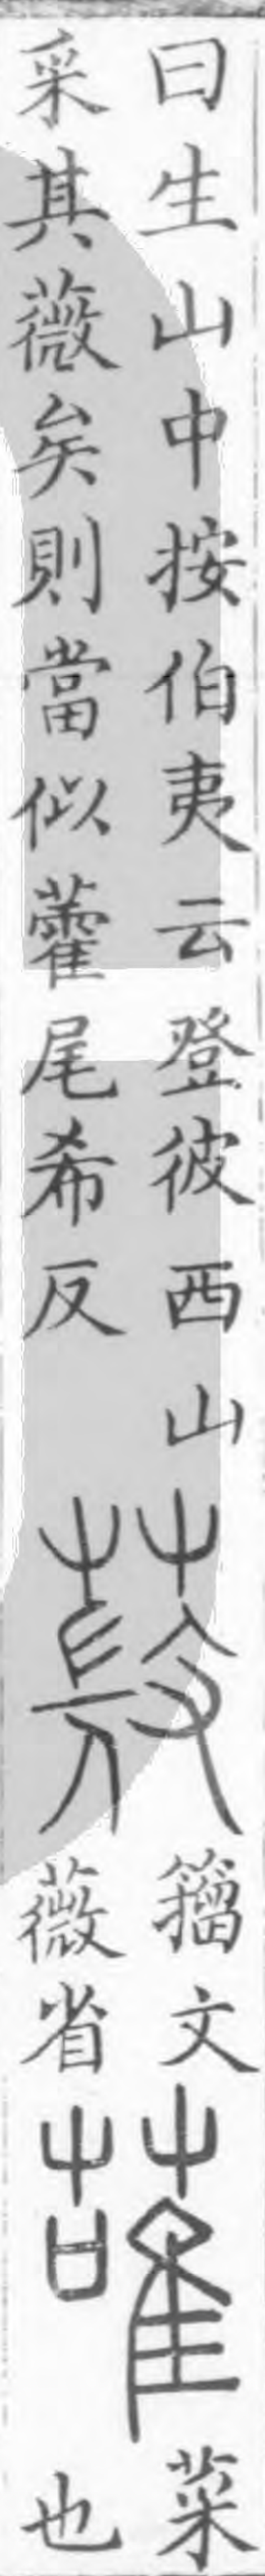 曰生山中按伯夷云登彼西山
采其薇矣則當似藿尾希反
籀文
薇省
蓶
菜
也